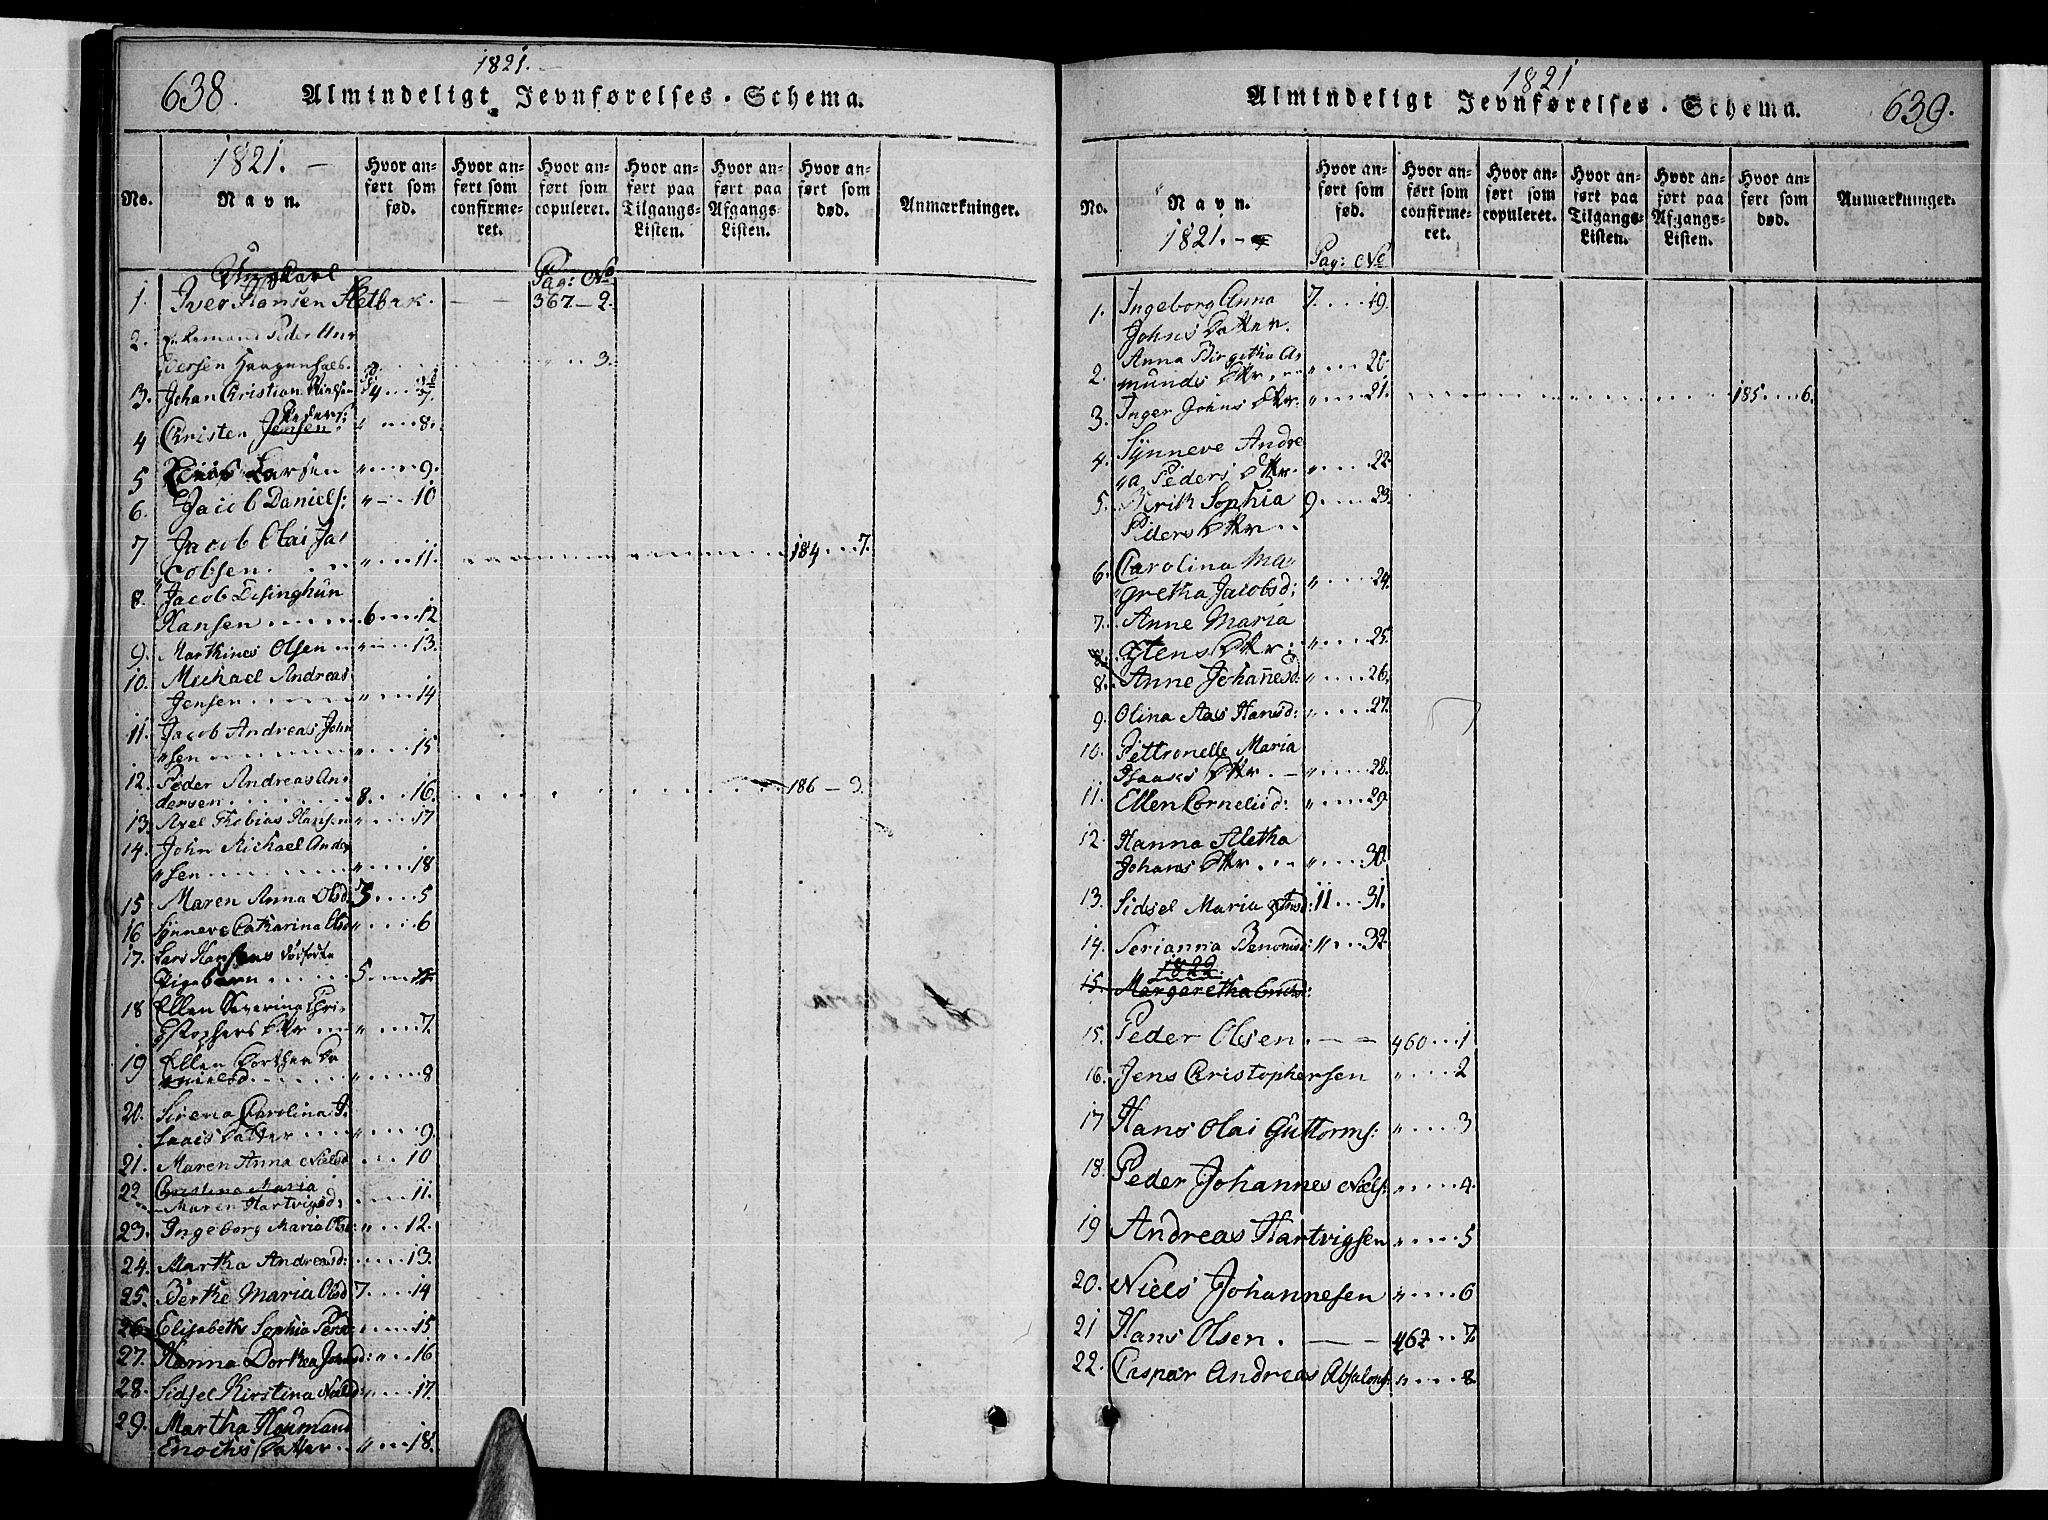 638.
1821.
Almindeligt Jevnførelses-Schema.
1821.
No.
Navn.
Hvor anført som fød.
Hvor anført som confirmeret.
Hvor anført som copuleret.
Hvor anført paa Tilgangs-Listen.
Hvor anført paa Afgangs-Listen.
Hvor anført som død.
Anmærkninger.
Pag: No
Ungkarl
1. Iver Hansen 367 - 2.
2. Enkemand Peder An-
dersen 3.
3. Johan Christian 4 7.
4 Christen Jensen Peders: " 8.
5 Larsen " 9.
6. Jacob Daniels: " 10
7 Jacob Olai Ja-
cobsen. " 11. 184 7.
8. Jacob Desinghun
Hansen 6 12
9. Marthines Olsen " 13.
10. Michael Andreas
Jensen " 14
11. Jacob Andreas John
"sen " 15
12. Peder Andreas An-
dersen 8 16. 186 - 9.
13. Axel Thobias Hansen " 17
14. John Michael Andr
"sen " 18
15 Maren Anna Olsd. 5
16 Synneve Catharina Olsd " 6
17. Lars Hansens dødfødte
Pigebarn 5
18 Ellen Severina Chri-
stophers Dtr " 7.
19 Ellen Dorthea Da
nielsd " 8
20. Sirena Carolina I-
saacs Datter " 9.
21. Maren Anna Nielsd 10
22 Christina Maria
Maren Hartvigsd: 11.
23. Ingeborg Maria Olsd: " 12.
24. Martha Andreasd: 13.
25. Berthe Maria Olsd 7. 14
26 Elisabeth Sophia " 15
27. Hanna Dorthea Johnsd: " 16
28. Sidsel Kirstina Nielsd " 17.
29. Martha
Enochs Datter " 18.
1821
Almindeligt Jevnførelses-Schema.
639.
No.
Navn.
1821.
Hvor anført som fød.
Hvor anført som confirmeret.
Hvor anført som copuleret.
Hvor anført paa Tilgangs-Listen.
Hvor anført paa Afgangs-Listen.
Hvor anført som død.
Anmærkninger.
Pag: No
1. Ingeborg Anna 7. 19.
Johns Datter.
2. Anna Birgitha A-
munds Dtr. " 20.
3. Inger Johns Dtr. " 21. 185 6.
4. Synneve Andre
"a Peders Dtr. " 22.
5. Berith Sophia 9 23.
Peders Dtr
6. Carolina Ma-
"gretha Jacobsd; " 24.
7. Anne Maria
Jens Dtr " 25.
8. Anne Johannesd " 26.
9. Olina Aas Hansd: " 27.
10. Pettronelle Maria
Isaacs Dtr. " 28.
11. Ellen Cornelisd: " 29.
12. Hanna Aletha
Johans Dtr. " 30.
13. Sidsel Maria 11 31.
14. Serianna Benonisd: " 32.
1822.
15. Margaretha
15. Peder Olsen. 460 1
16. Jens Christophersen " 2
17 Hans Olai Guttorms: " 3
18. Peder Johannes Niels: " 4.
19 Andreas Hartvigsen " 5
20. Niels Johannesen " 6
21 Hans Olsen. 462 7.
22. Caspar Andreas Absalons: " 8.